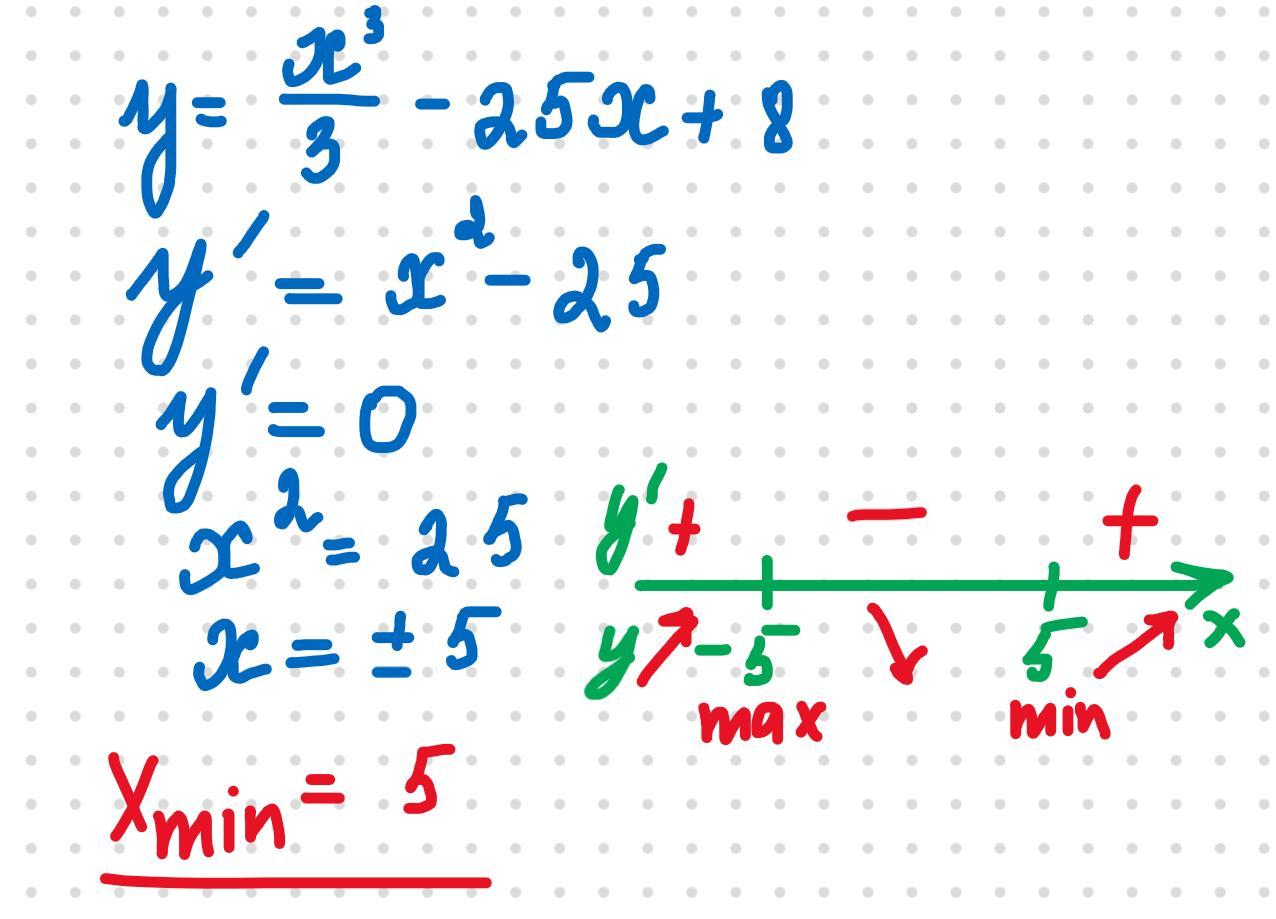 y = x³/3 - 25x + 8
y' = x² - 25
y' = 0
x² = 25
x = ± 5
y' + − +
y -5 5 x
max min
Xmin = 5